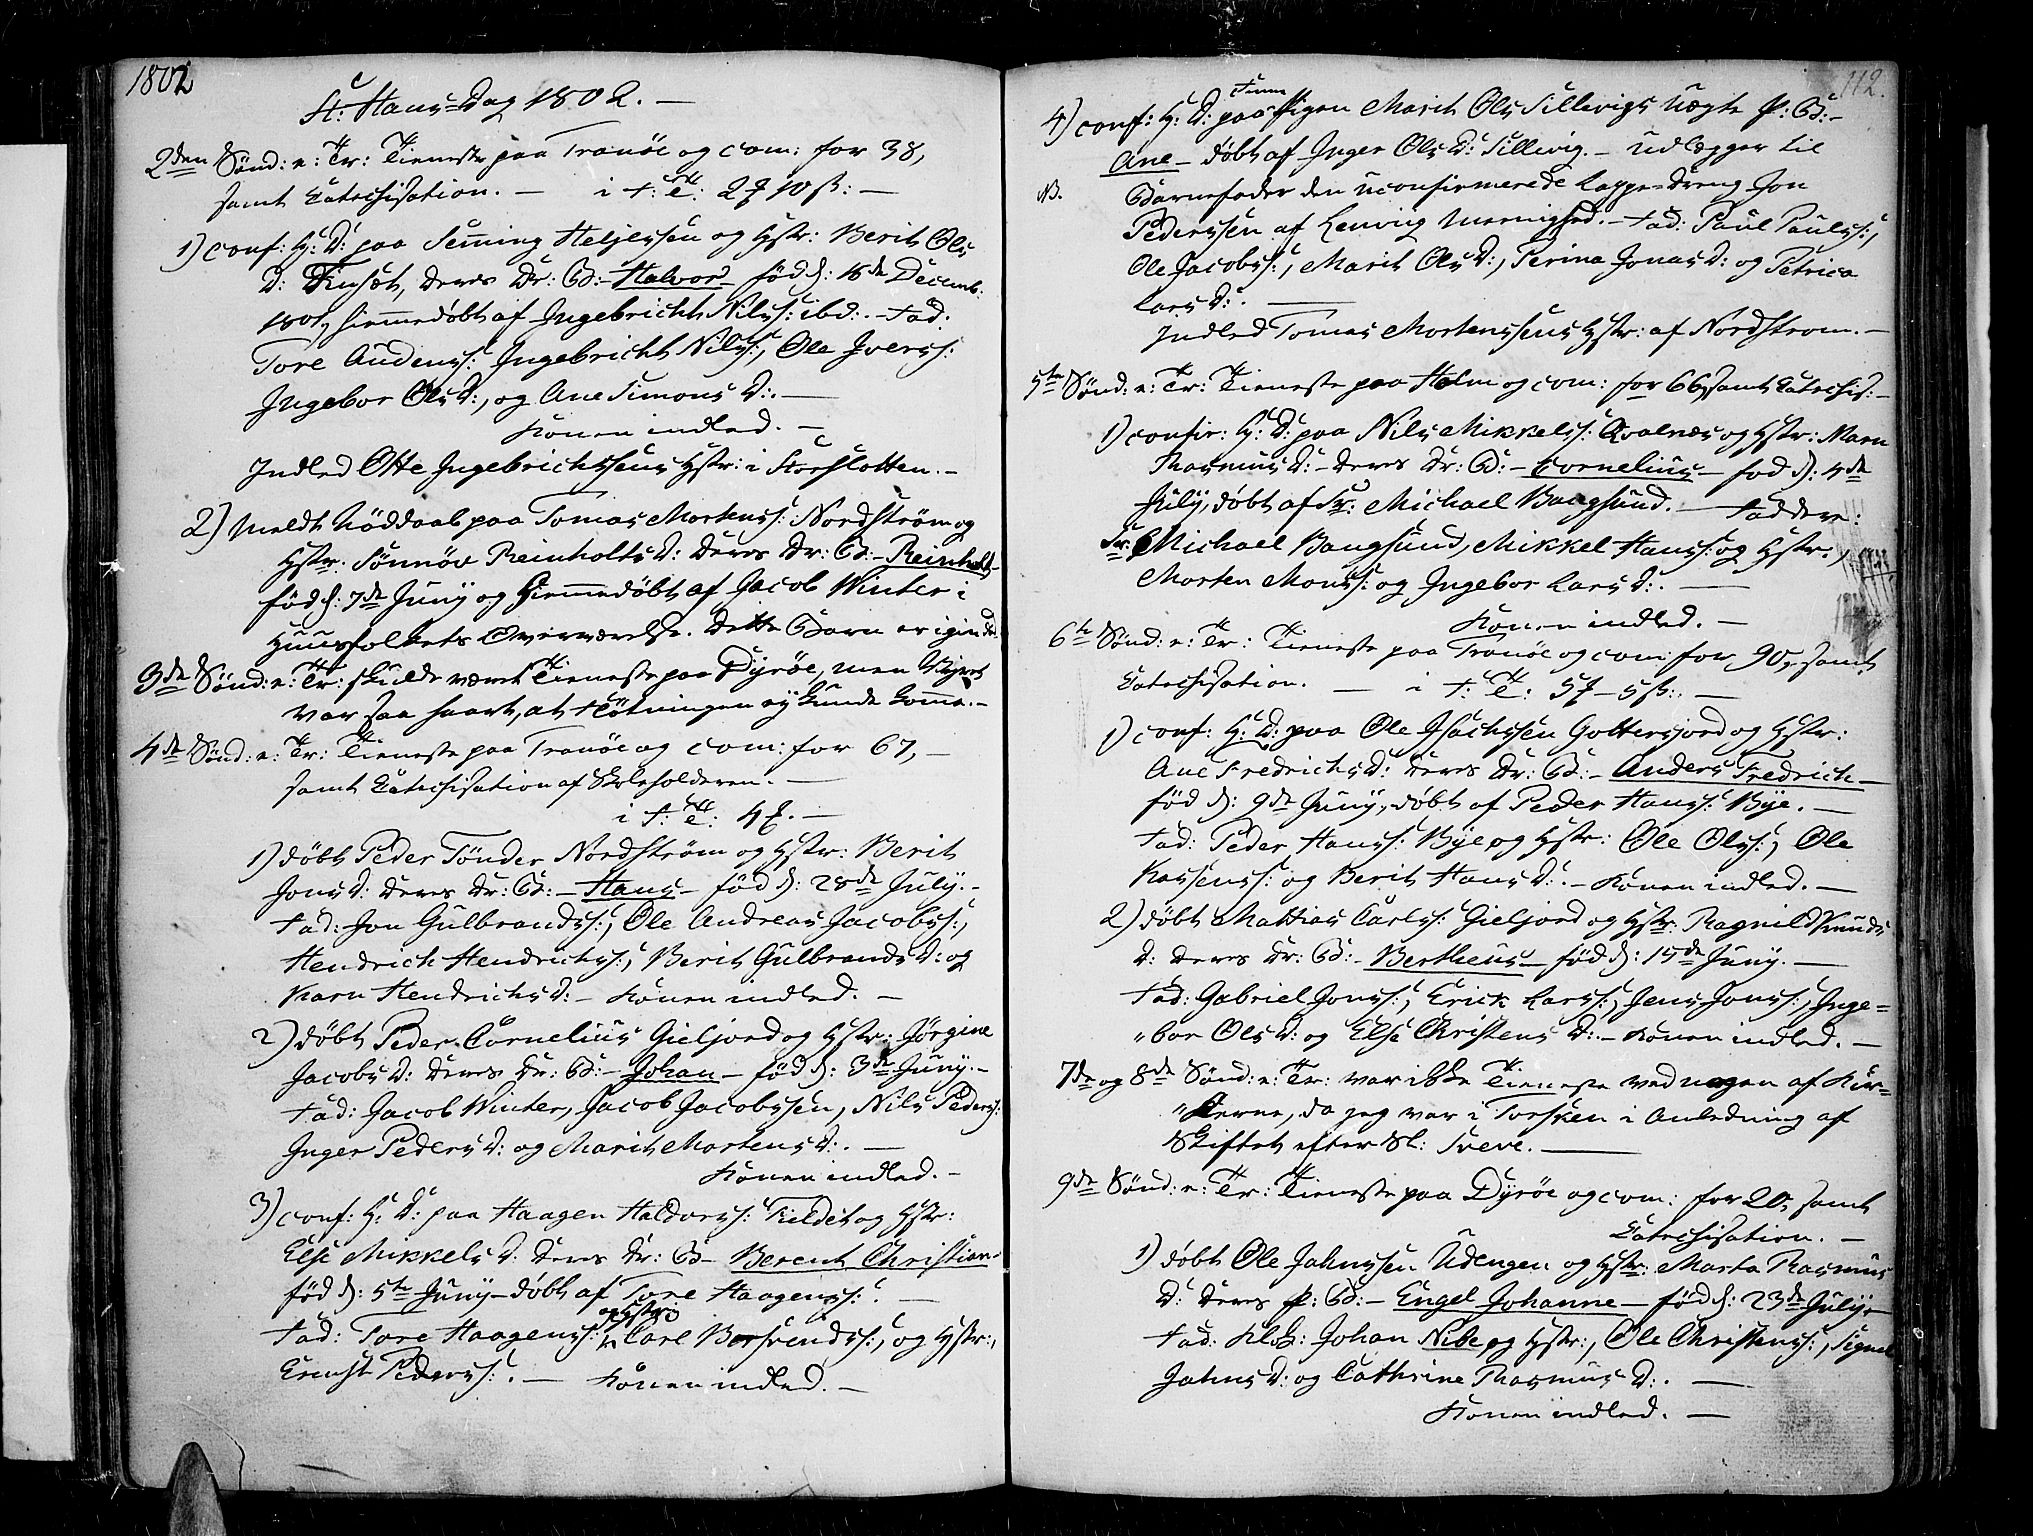 1802
St: Hans=Dag 1802. —
2den Sønd: e: Tr: Tieneste paa Tranöe og com: for 38,
samt Catechisation. — i T: 2 10 ß: —
1) conf: H: D: paa Heljessen og Hstr: Berit Ols
D: deres Dr: B: – Halvor – föd d: 16de Decemb:
1801, hiemmedöbt af Ingebricht Nils: ibd: – Fad:
Tore Audens: Ingebricht Nils:, Ole Ivers:
Ingebor Ols D:, og Ane Simons D: —
Konen indled. —
Indled Otte Ingebrichtsens Hstr: i Storslotten. –
2) Meldt Nöddaab paa Tomas Mortens: Nordström og
Hstr. Sönnöv Reinholts D: deres Dr: B: – Reinholt –
föd d: 7de Juny og hiemmedöbt af Jacob Winter i
Huusfolkets Overværelse. Dette Barn er igien död.
3de Sønd: e: Tr: skulde været Tieneste paa Dyröe, men Vejret
var saa haart, at ej kunde komme. –
4de Sønd: e: Tr: Tieneste paa Tranöe og com: for 67, —
samt Catechisation af Skoleholderen. —
i T: 4 . —
1) döbt Peder Tönder Nordström og Hstr: Berit
Jons D: deres Dr: B: – Hans – föd d: 28de July. –
Fad: Jon Gulbrands:, Ole Andreas Jacobs:,
Hendrich Hendrichs:, Berit Gulbrands D: og
Karn Hendrichs D: – Konen indled. —
2) döbt Peder Cornelius Gieljord og Hstr: Jörgine
Jacobs D: deres Dr: B: – Johan – föd d: 3de Juny. –
Fad: Jacob Winter, Jacob Jacobssen, Nils Peders:
Inger Peders D: og Marit Mortens D: . —
Konen indled. –
3) conf: H: D: paa Haagen Haldors: og Hstr:
Else Mikkels D: deres Dr: B – Berent Christian –
föd d: 5te Juny – döbt af Tore Haagens: . —
og Hstr:
Fad: Tore Haagens: Carl Bersvends:, og Hstr:,
Ernst Peders: . — Konen indled. —
112.
Finn
4) conf: H: D: paa Pigen Marit Ols Sillevigs uægte P: B: –
Ane – döbt af Inger Ols D: Sillevig. – Udlægger til
NB. Barnefader den uconfirmerede Lappe=Dreng Jon
Pederssen af Lenvig Meenighed. – Fad: Paul Pauls:,
Ole Jacobs:, Marit Ols D:, Perina Jonas D: og Petrica
Lars D: . —
Indled Tomas Mortenssens Hstr: af Nordstrom. —
5te Sønd: e: Tr: Tieneste paa Holm og com: for 66, samt Catechis: –
1) confir: H: D: paa Nils Mikkels: Qvalnæs og Hstr: Marn
Rasmus D: – deres Dr: B: – Cornelius – fod d: 4de
July, döbt af Sr: Michael Bangsund. — Faddere:
Sr: Michael Bangsund, Mikkel Hans: og Hstr:,
Morten Mons: og Ingebor Lars D: . —
Konen indled. —
6te Sønd: e: Tr: Tieneste paa Tranöe og com: for 90, samt
Catechisation. — i T: 5 – 5 ß: . —
1) conf: H: D: paa Ole Isachssen Gottesjord og Hstr:
Ane Fredrichs D: deres Dr: B: – Anders Fredrich —
föd d: 9de Juny, döbt af Peder Hans: Bye. —
Fad: Peder Hans: Bye og Hstr: Ole Ols:, Ole
Kassens: og Berit Hans D: . – Konen indled. —
2) döbt Mattias Carls: Gieljord og Hstr: Ragnild Knuds
D: deres Dr: B: – Bertheus – föd d: 15de Juny. —
Fad: Gabriel Jons:, Erick Lars:, Jens Jons:, Inge=
"bor Ols D: og Else Christens D: – Konen indled. —
7de og 8de Sønd: e: Tr: var ikke Tieneste ved nogen af Kir=
"kerne, da jeg var i Torsken i Anledning af
Skiftet efter Sl: Sveve. —
9de Sønd: e: Tr: Tieneste paa Dyröe og com: for 20, samt
Catechisation. —
1) döbt Ole Jahnssen Udengen og Hstr: Marta Rasmus
D: deres P: B: – Engel Johanne – föd d: 23de July –
Fad: Klok: Johan Nibe og Hstr:, Ole Christens:, Signel
Jahns D: og Cathrine Rasmus D: . —
Konen indled. —